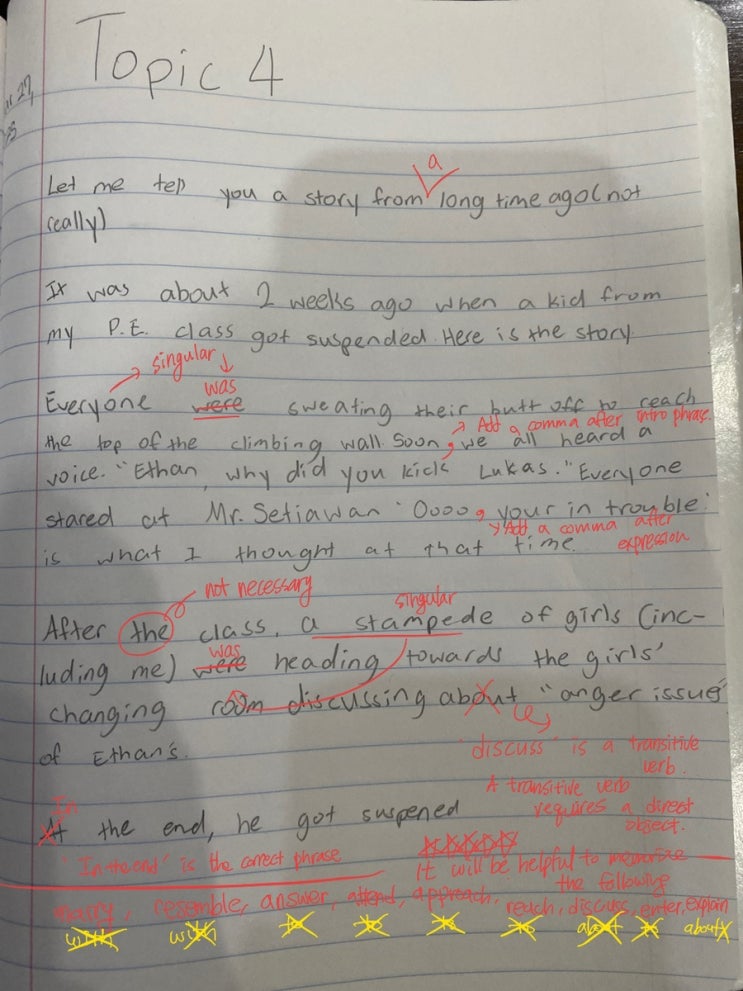 Topic 4
a
Let me tell you a story from long time ago (not
really)
It was about 2 weeks ago when a kid from
my P.E. class got suspended. Here is the story.
singular
was
Everyone were sweating their butt off to reach
Add a comma after intro phrase.
the top of the climbing wall. Soon, we all heard a
voice. "Ethan, why did you kick Lukas." Everyone
stared at Mr. Setiawan 'Oooo, your in trouble'
Add a comma after
expression
is what I thought at that time.
not necessary
singular
After the class, a stampede of girls (inc-
was
luding me) were heading towards the girls'
changing room discussing about "anger issue"
of Ethan's.
"discuss" is a transitive
verb.
A transitive verb
requires a direct
object.
In
At the end, he got suspened
"In the end" is the correct phrase
It will be helpful to memorize
the following
marry, resemble, answer, attend, approach, reach, discuss, enter, explain
with with to to to to about to about